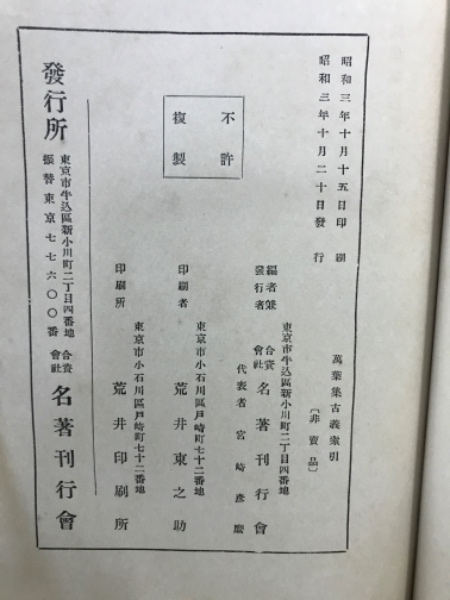 昭和三年十月十五日印刷
昭和三年十月二十日發行
萬葉集古義索引
〔非賣品〕
不許
複製
東京市牛込區新小川町二丁目四番地
編者兼
發行者
合資
會社
名著刊行會
代表者 宮崎彦麿
東京市小石川區戸崎町七十二番地
印刷者 荒井東之助
東京市小石川區戸崎町七十二番地
印刷所 荒井印刷所
發行所
東京市牛込區新小川町二丁目四番地
振替東京七七六〇〇番
合資
會社
名著刊行會